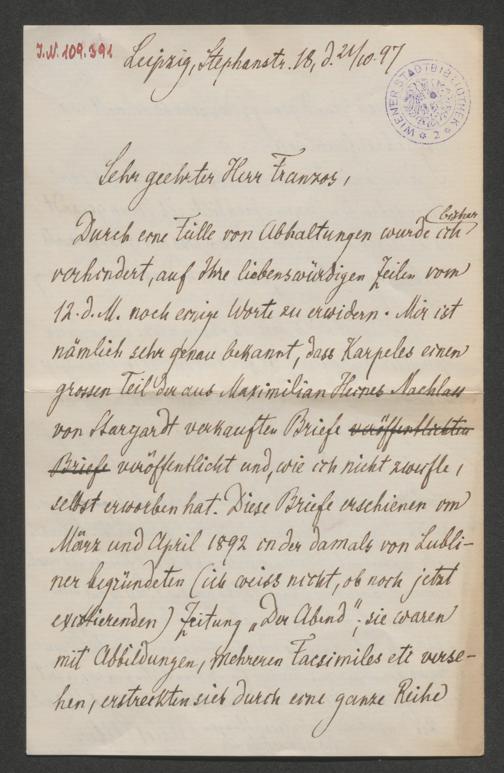 J.N. 109.391
Leipzig, Stephanstr. 18, d. 21/10.97
WIENER STADTBIBLIOTHEK 2
Sehr geehrter Herr Franzos,
(bisher
Durch eine Fülle von Abhaltungen wurde ich
verhindert, auf Ihre liebenswürdigen Zeilen vom
12. d. M. noch einige Worte zu erwidern. Mir ist
nämlich sehr genau bekannt, dass Karpeles einen
grossen Teil der aus Maximilian Heines Nachlass
von Stargardt verkauften Briefe veröffentlichten
Briefe veröffentlicht und, wie ich nicht zweifle,
selbst erworben hat. Diese Briefe erschienen im
März und April 1892 in der damals von Lubli-
ner begründeten (ich weiss nicht, ob noch jetzt
existierenden) Zeitung „Der Abend"; sie waren
mit Abbildungen, mehreren Facsimiles etc verse-
hen, erstreckten sich durch eine ganze Reihe